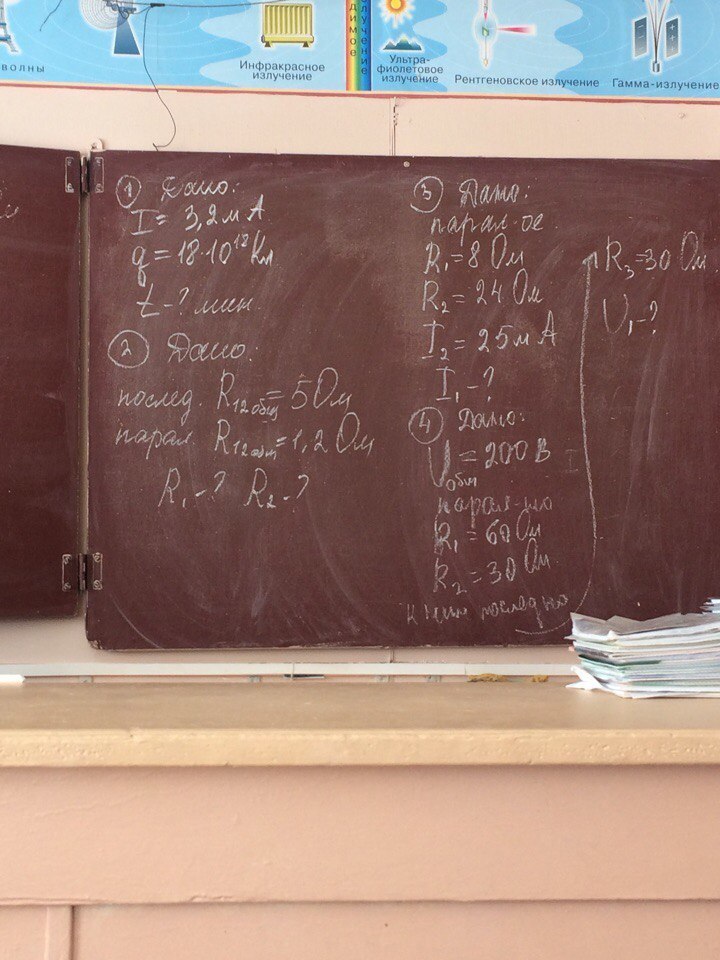 волны
Инфракрасное
излучение
димое
лучение
Ультра-
фиолетовое
излучение
Рентгеновское излучение
Гамма-излучение
① Дано:
I = 3,2 мА
q = 18·10¹² Кл
t - ? мин
② Дано:
послед. R₁₂общ = 5 Ом
парал. R₁₂общ = 1,2 Ом
R₁ - ? R₂ - ?
③ Дано:
парал-ое
R₁ = 8 Ом
R₂ = 24 Ом
I₂ = 25 мА
I₁ - ?
④ Дано:
Uобщ = 200 В
парал-но
R₁ = 60 Ом
R₂ = 30 Ом
к ним последно
R₃ = 30 Ом
U₁ - ?